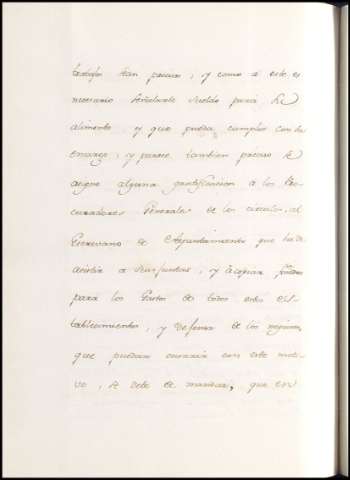 trabajo tan preciso, y como á este es
necesario señalarle sueldo para su
alimento y que pueda cumplir con su
encargo, y parece tambien preciso se
asigne alguna gratificacion á los Pro-
curadores Generales de los circulos, al
Escrivano de Ayuntamiento que ha de
asistir a sus juntas, y á copiar
para los Gastos de todos estos es-
tablecimientos, y defensa de los
que puedan ocurrir con este moti-
vo, se debe de mandar, que en